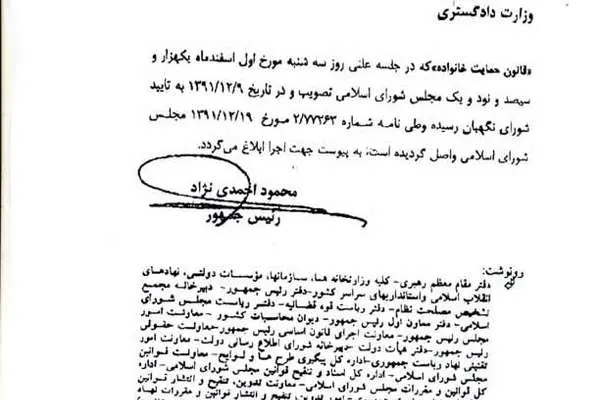 وزارت دادگستری
«قانون حمایت خانواده»که در جلسه علنی روز سه شنبه مورخ اول اسفندماه یکهزار و
سیصد و نود و یک مجلس شورای اسلامی تصویب و در تاریخ ۱۳۹۱/۱۲/۹ به تایید
شورای نگهبان رسیده وطی نامه شماره ۲/۷۷۲۶۳ مورخ ۱۳۹۱/۱۲/۱۹ مجلس
شورای اسلامی واصل گردیده است، به پیوست جهت اجرا ابلاغ می‌گردد.
محمود احمدی نژاد
رئیس جمهور
رونوشت:
دفتر مقام معظم رهبری- کلیه وزارتخانه ها، سازمانها، مؤسسات دولتی، نهادهای
انقلاب اسلامی واستانداریهای سراسر کشور-دفتر رئیس جمهور- دبیرخانه مجمع
تشخیص مصلحت نظام- دفتر ریاست قوه قضائیه- دفتر ریاست مجلس شورای
اسلامی- دفتر معاون اول رئیس جمهور- دیوان محاسبات کشور - معاونت امور
مجلس رئیس جمهور- معاونت اجرای قانون اساسی رئیس جمهور-معاونت حقوقی
رئیس جمهور-دفتر هیأت دولت -دبیرخانه شورای اطلاع رسانی دولت- معاونت امور
تقنینی نهاد ریاست جمهوری-اداره کل پیگیری طرح ها و لوایح- معاونت قوانین
مجلس شورای اسلامی- اداره کل اسناد و تنقیح قوانین مجلس شورای اسلامی- اداره
کل قوانین و مقررات مجلس شورای اسلامی- معاونت تدوین، تنقیح و انتشار قوانین
امور تدوین، تنقیح و انتشار قوانین و مقررات نهاد